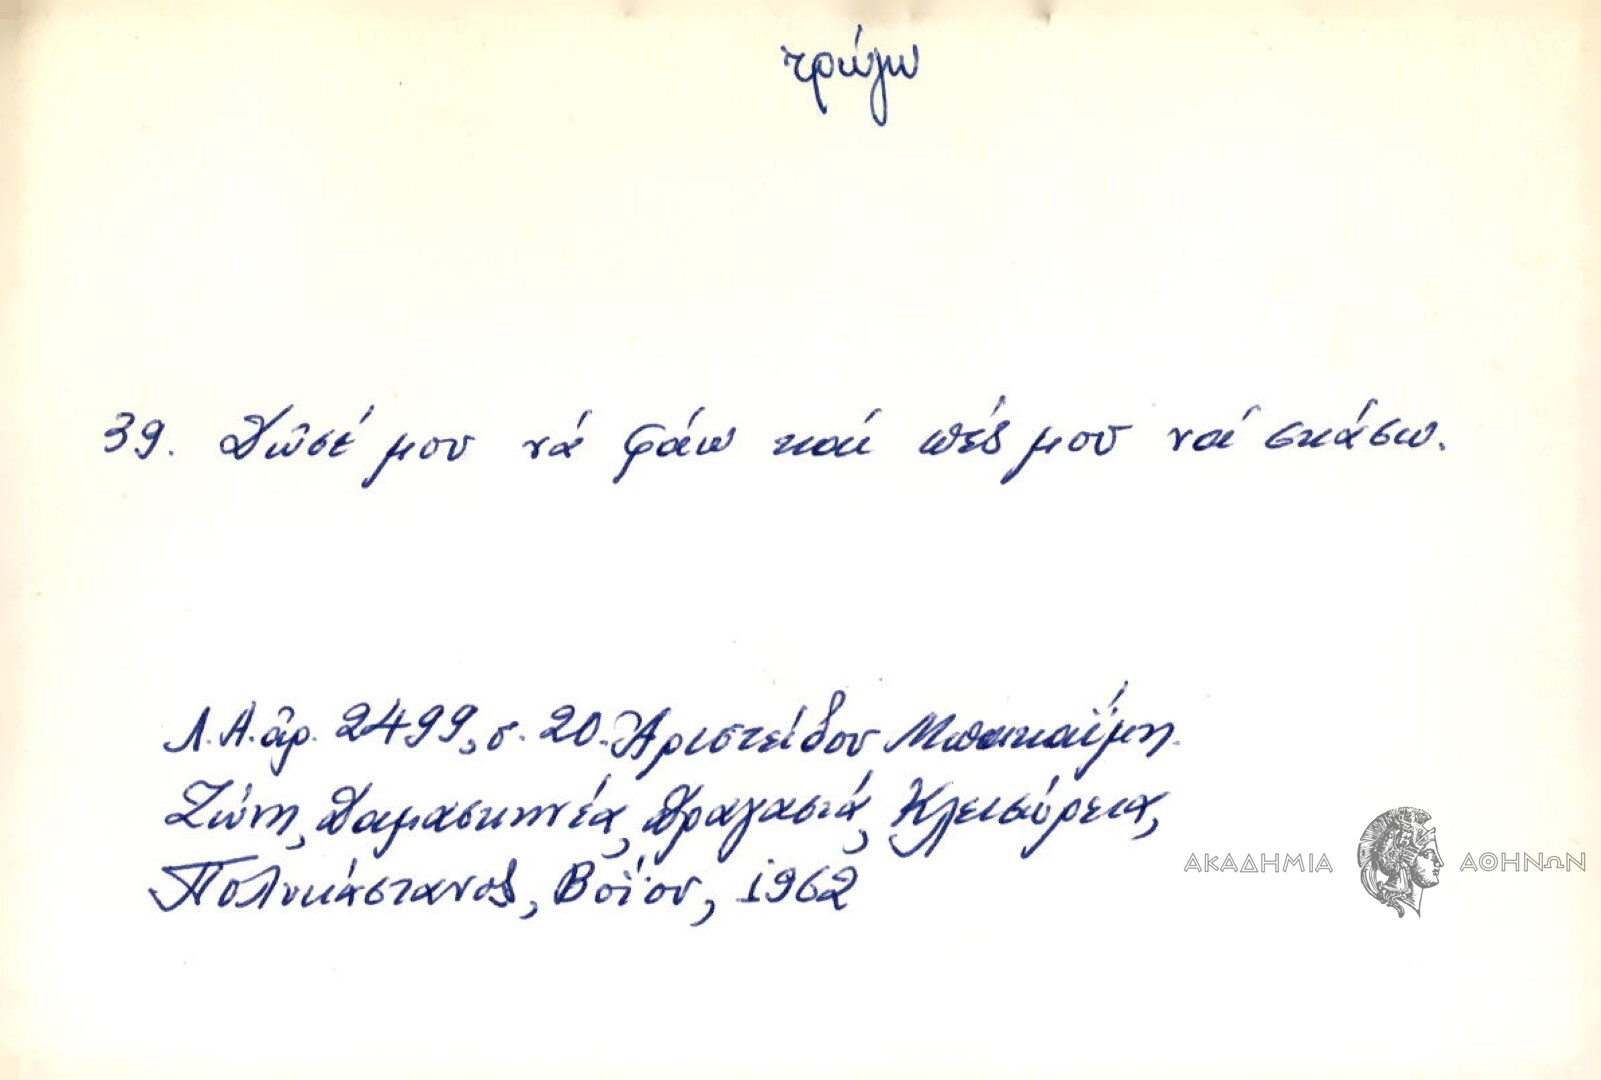 τρώγω
39. Δῶσέ μου νά φάω καί πές μου νά σκάσω.
Λ.Α. ἀρ. 2499, σ. 20. Ἀριστείδου Μπακαΐμη.
Ζώνη, Δαμασκηνέα, Δραγασιά, Κλεισώρεια,
Πολυκάστανος, Βοΐου, 1962
ΑΚΑΔΗΜΙΑ ΑΘΗΝΩΝ